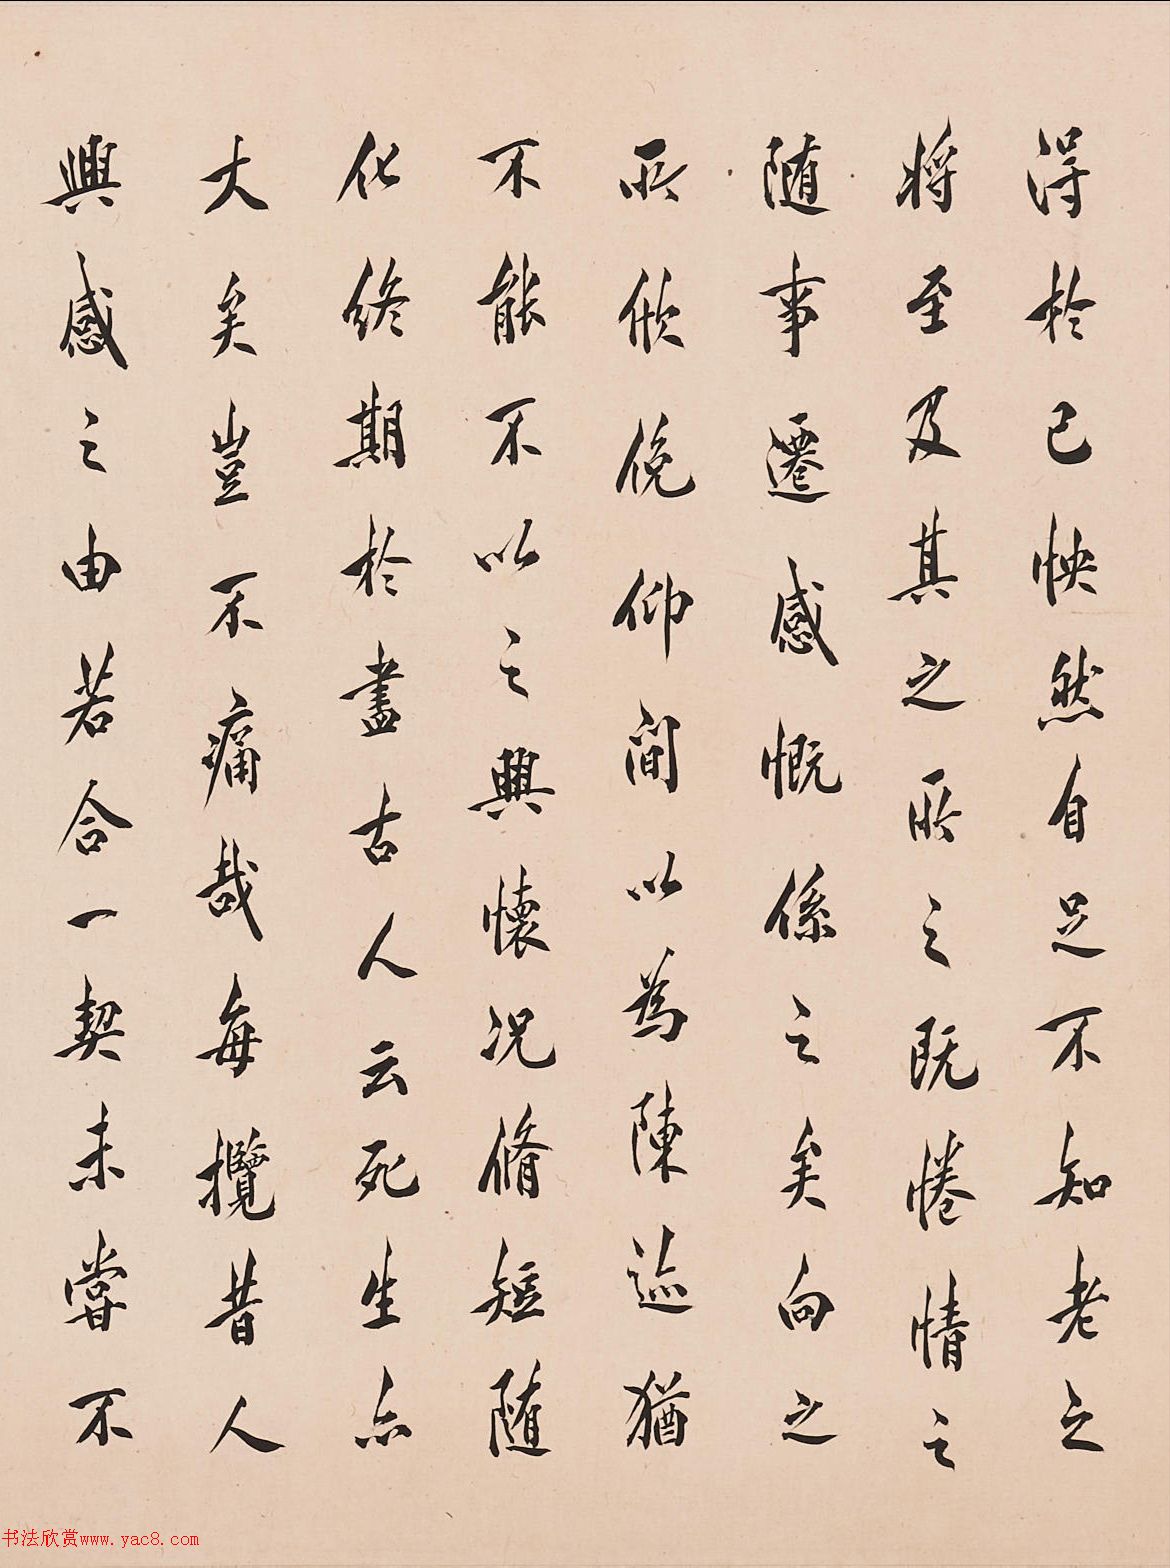 得於己怏然自足不知老之
將至及其之所之既惓情之
随事遷感慨係之矣向之
所欣俛仰間以為陳迹猶
不能不以之興懷况脩短随
化終期於盡古人云死生亦
大矣豈不痛哉每攬昔人
興感之由若合一契未甞不
书法欣赏www.yac8.com